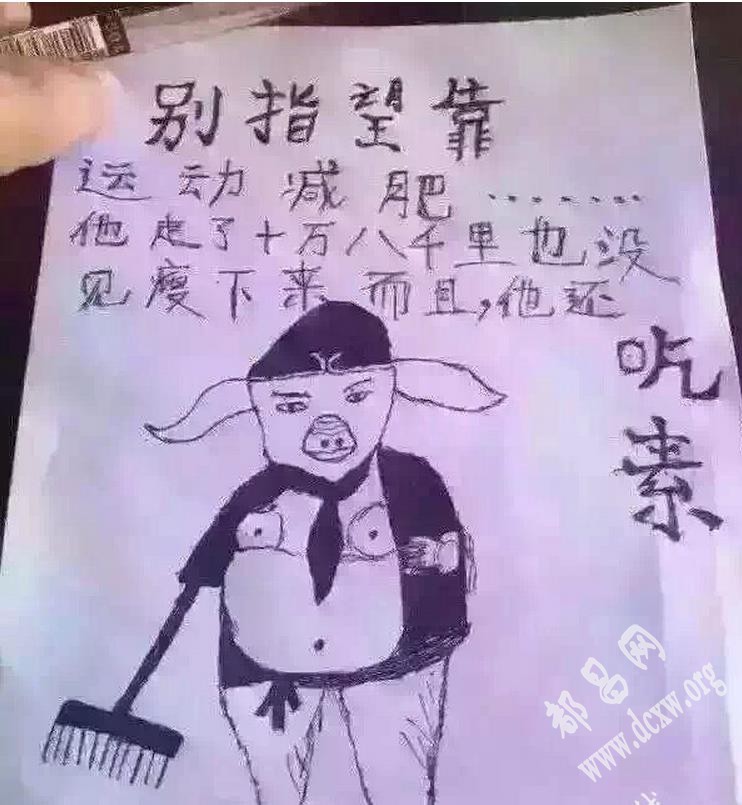 别指望靠
运动减肥.......
他走了十万八千里也没
见瘦下来而且,他还
吃素
都昌网
www.dcxw.org